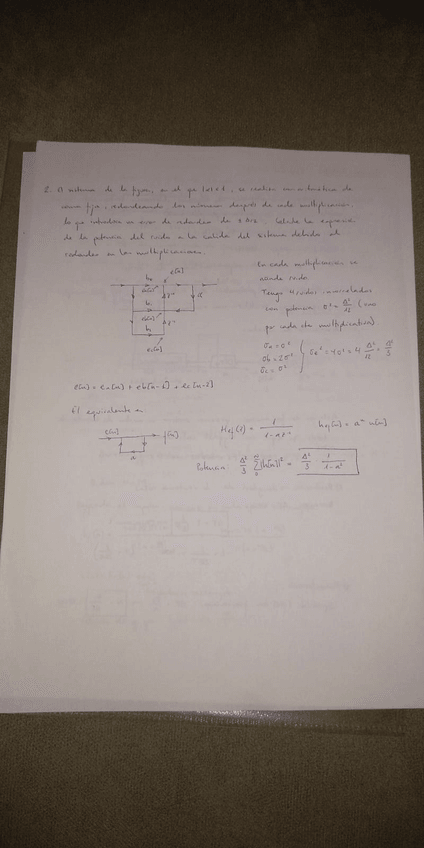 2. El sistema de la figura, en el que |a|<1, se realiza con aritmética de
coma fija, redondeando los números después de cada multiplicación,
lo que introduce un error de redondeo de ± Δ/2. Calcula la expresión
de la potencia del ruido a la salida del sistema debido al
redondeo en las multiplicaciones.
En cada multiplicación se
añade ruido
Tengo 4 ruidos incorrelados
con potencia σ² = Δ²/12 (uno
por cada cte multiplicativa)
e[n]
b₀
z⁻¹
a
b₁
z⁻¹
ec[n]
σa = σ²
σb = 2σ²
σc = σ²
σe² = 4σ² = 4 Δ²/12 = Δ²/3
e[n] = ea[n] + eb[n-1] + ec[n-2]
El equivalente es
e[n]
f[n]
a
Hef(z) = 1/(1-az⁻¹)
hef[n] = aⁿ u[n]
Potencia: Δ²/3 Σ|h[n]|² = Δ²/3 1/(1-a²)